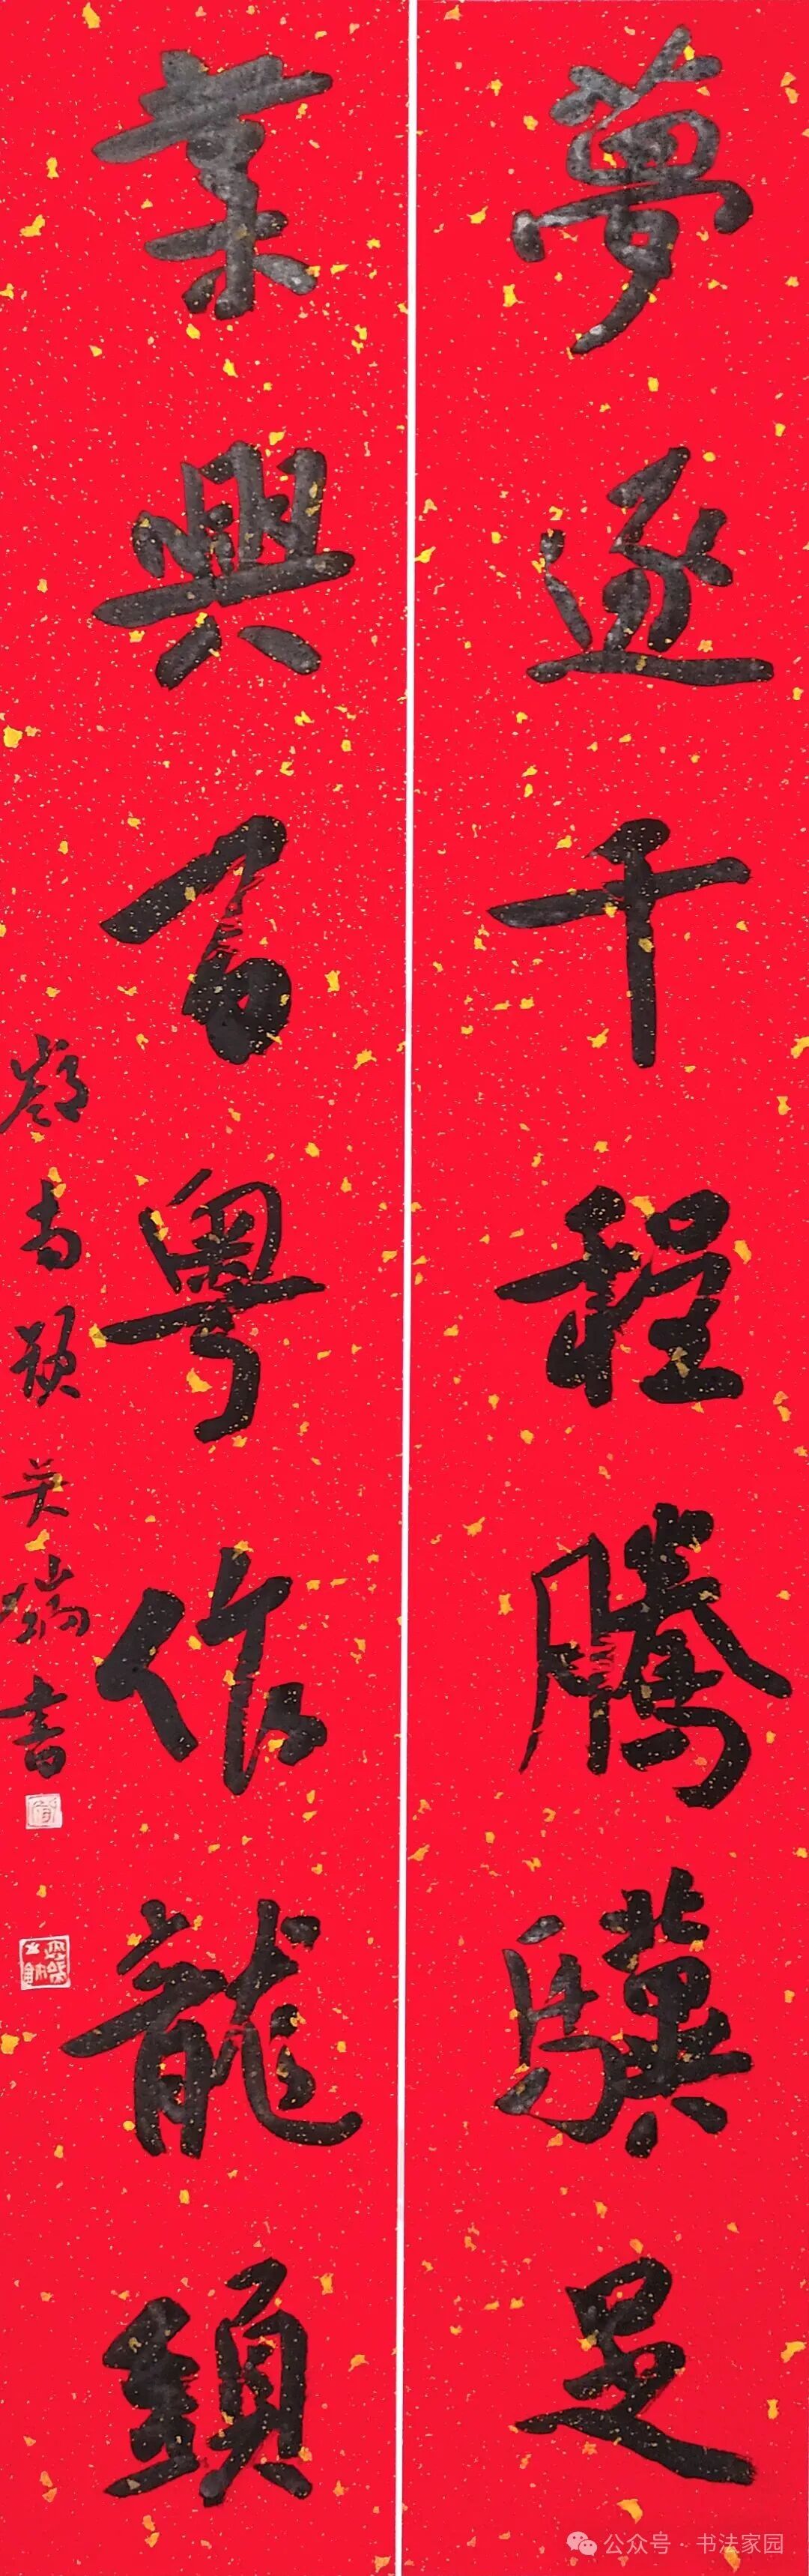 夢逐千程騰驥足
業興百粵作龍頭
嶺南 吴瑞书
公众号·书法家园